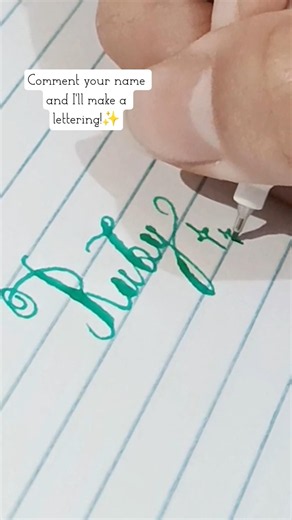 Comment your name
and I'll make a
lettering!✨
Ruby